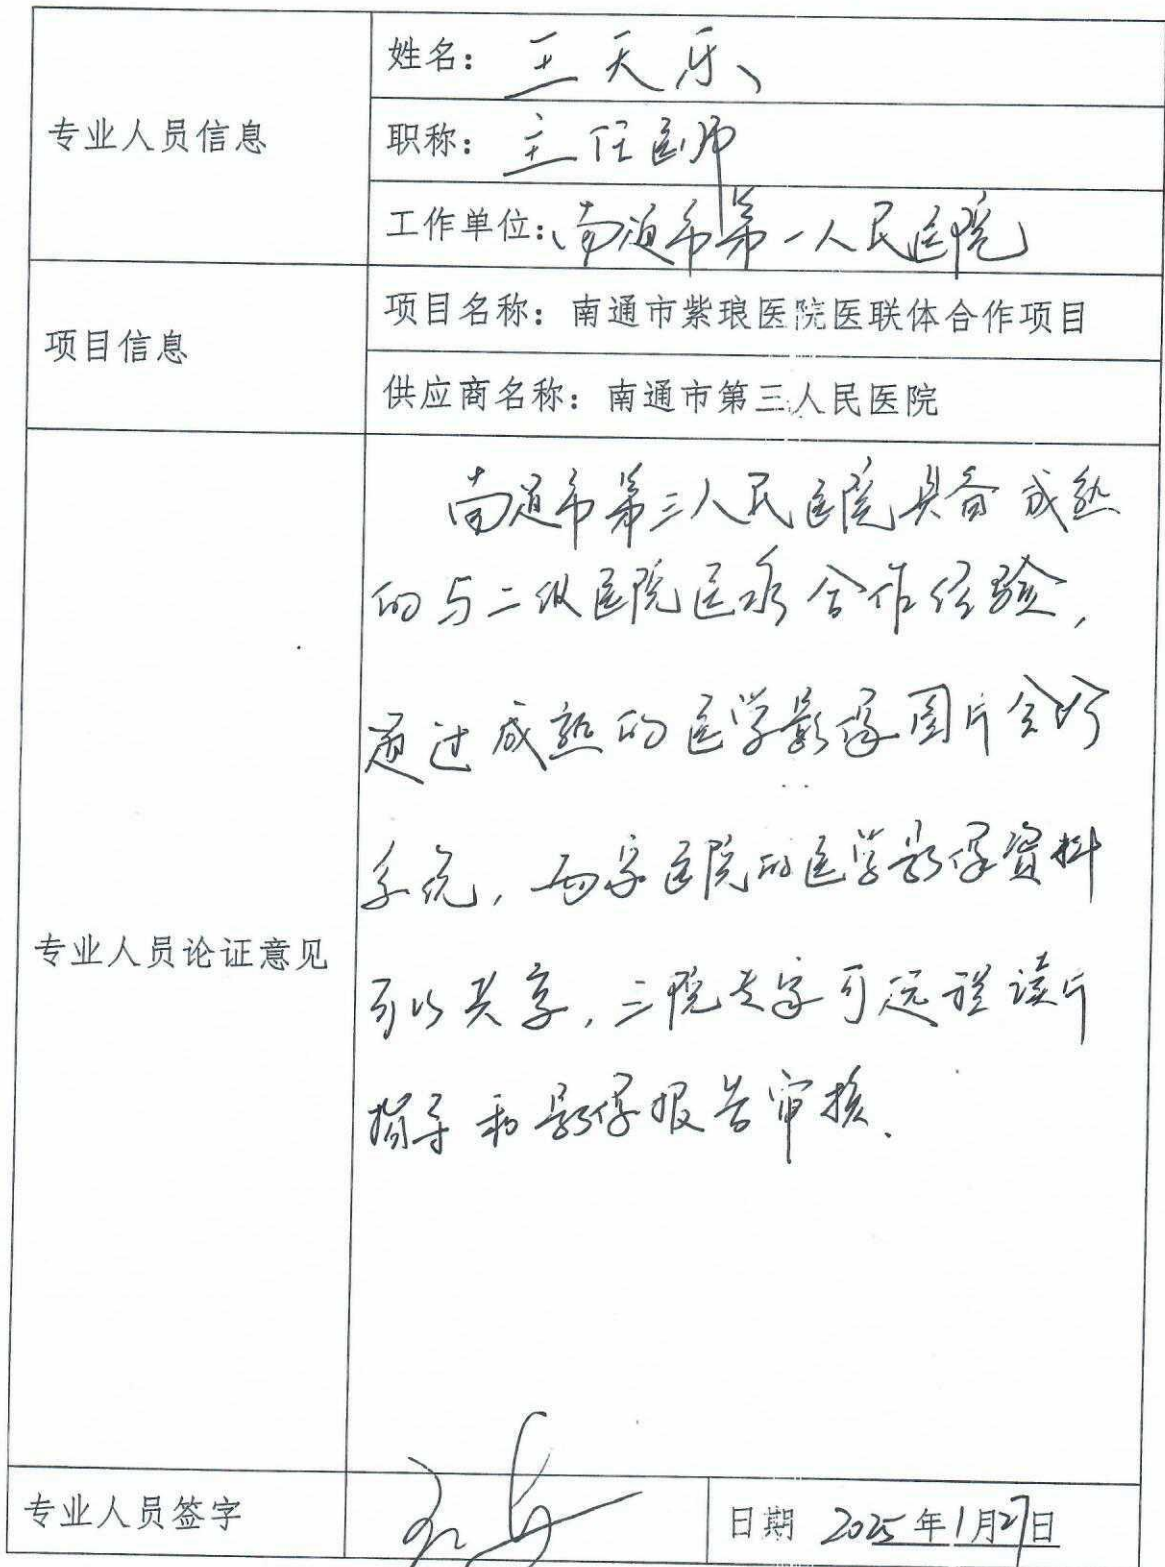 专业人员信息
姓名：王天乐
职称：主任医师
工作单位：南通市第一人民医院
项目信息
项目名称：南通市紫琅医院医联体合作项目
供应商名称：南通市第三人民医院
专业人员论证意见
南通市第三人民医院具备成熟
的与二级医院医疗合作经验，
通过成熟的医学影像图片会诊
系统，两家医院的医学影像资料
可以共享，三院专家可远程读片
指导和影像报告审核.
专业人员签字
日期 2025年1月27日